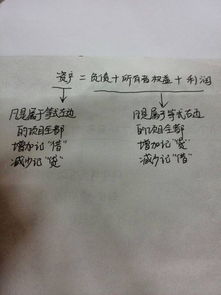 资产 = 负债 + 所有者权益 + 利润
凡是属于等式左边
的项目全部
增加记“借”
减少记“贷”
凡是属于等式右边
的项目全部
增加记“贷”
减少记“借”